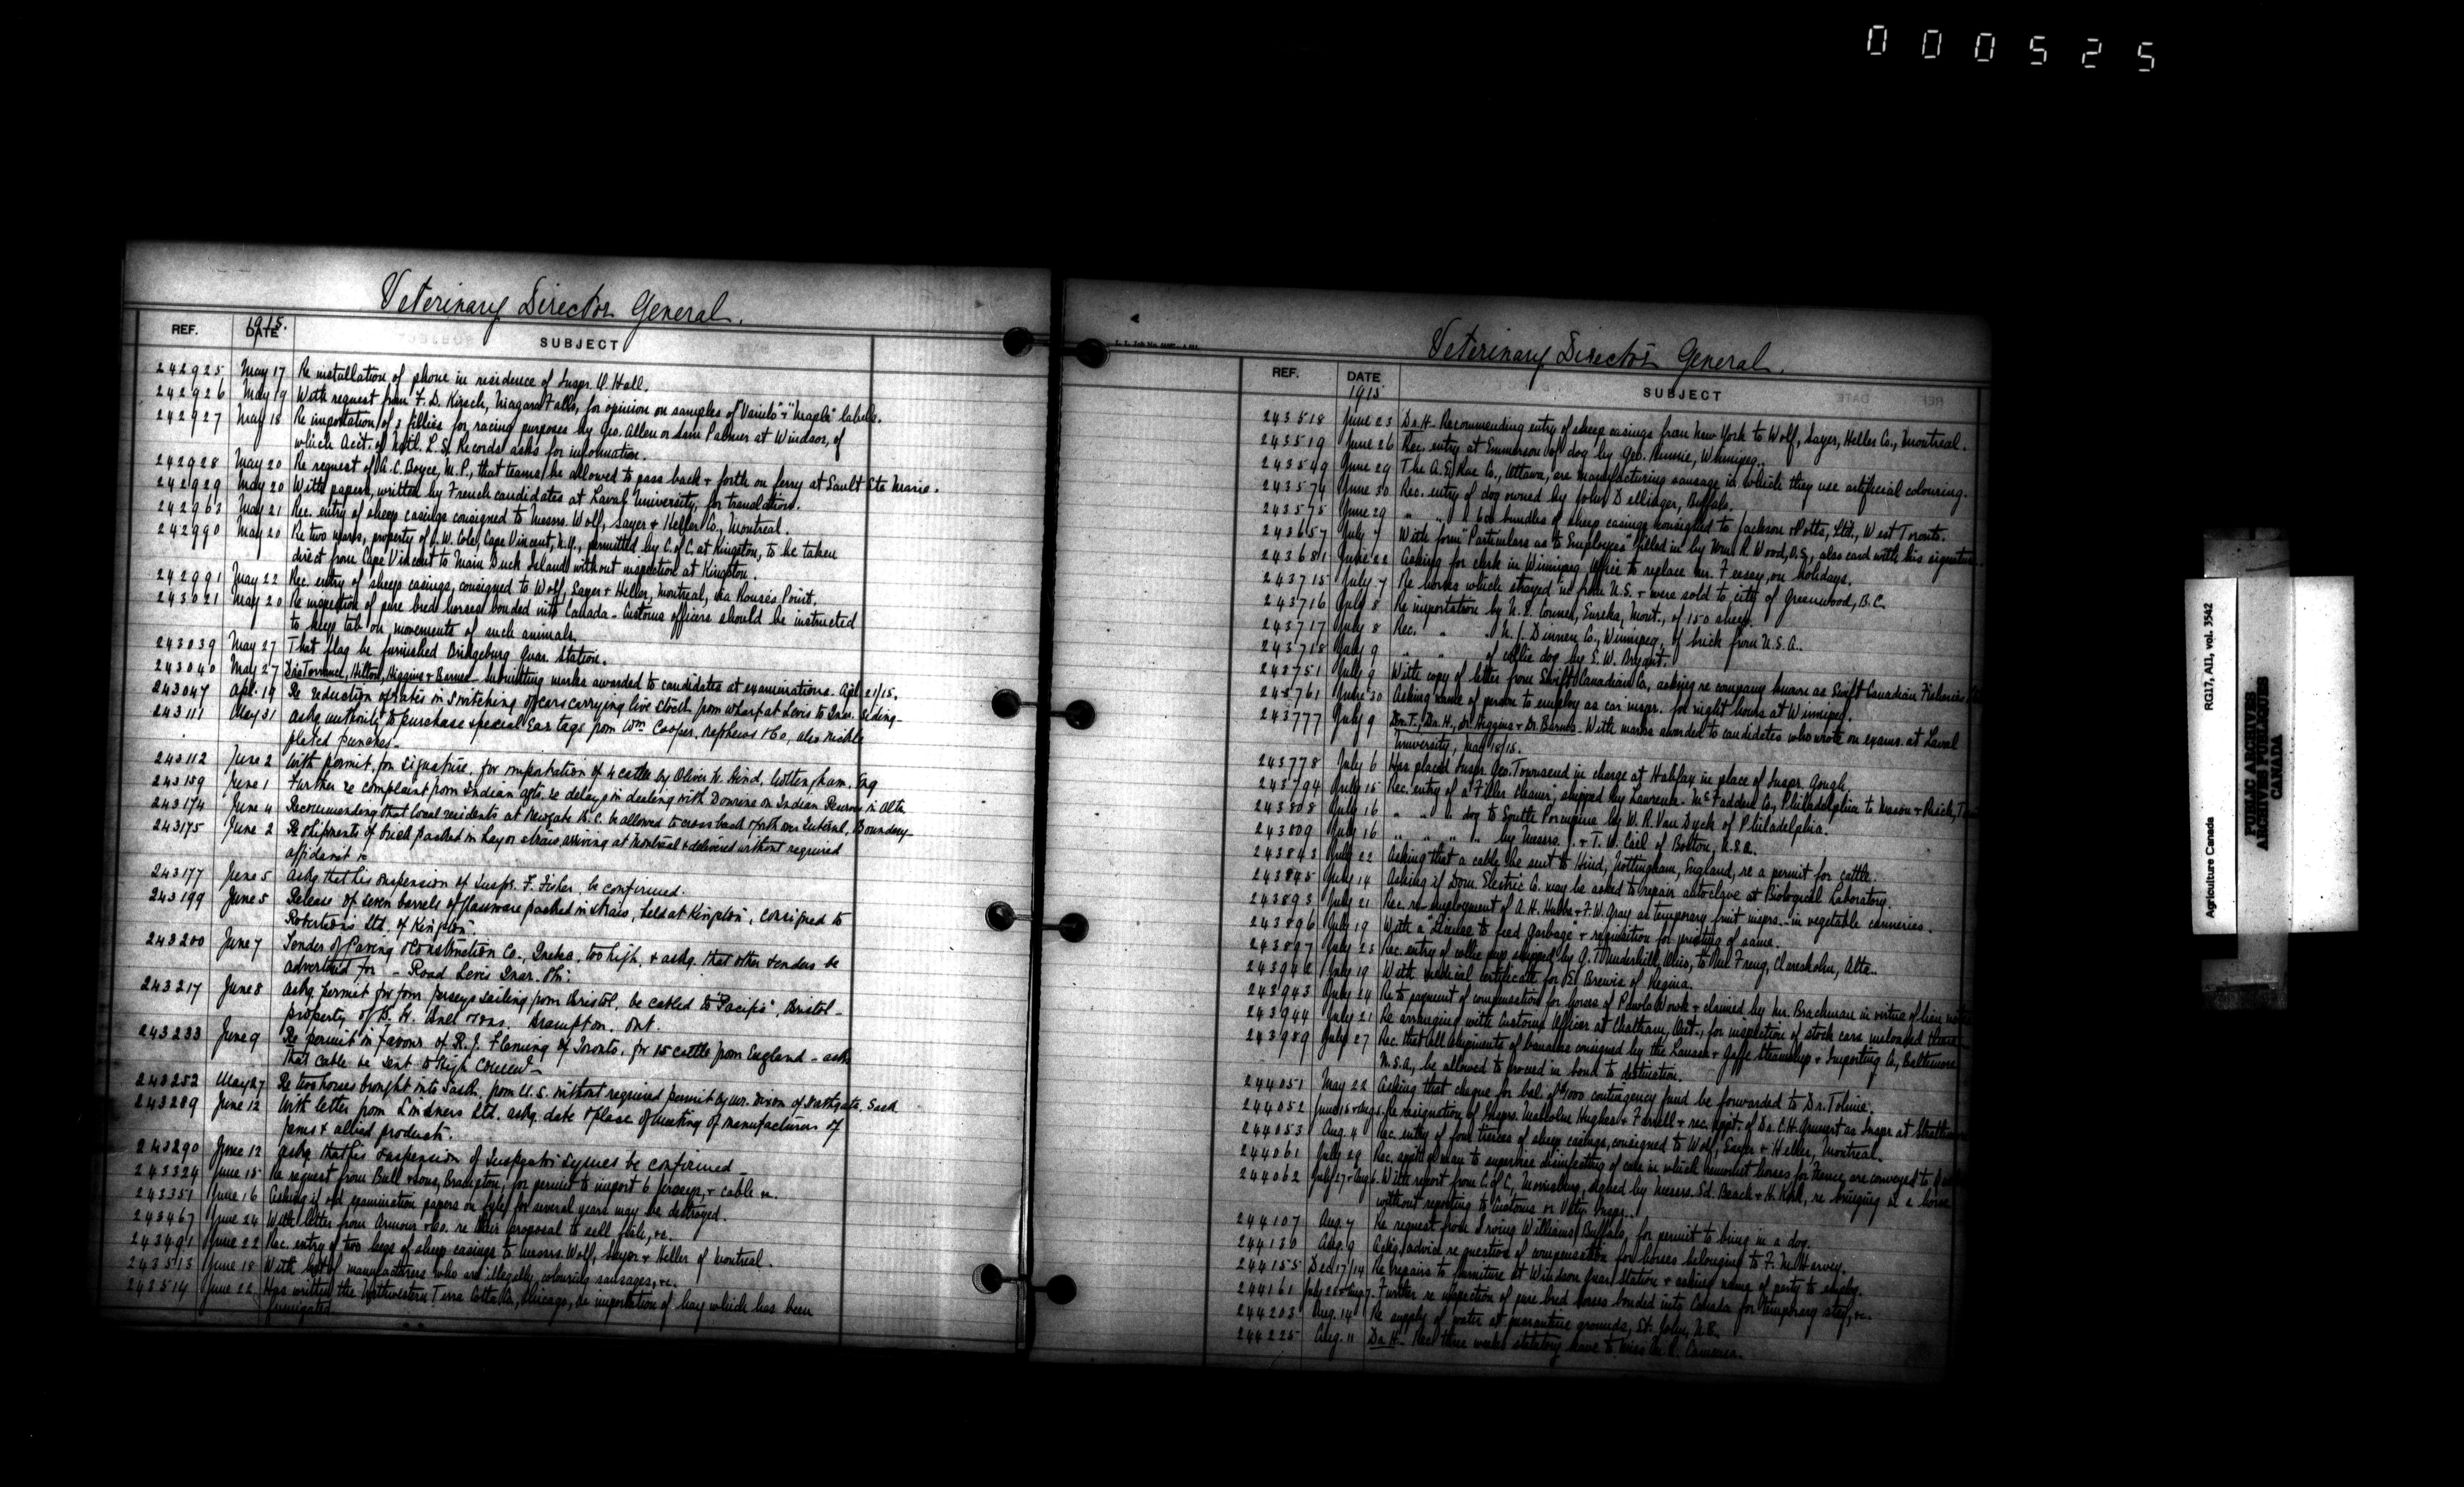 000525
Veterinary Director General.
REF.
1915.
DATE
SUBJECT
242925 May 17 Re installation of phone in residence of Inspr. Hall.
242926 May 19 With request from F. D. Kirsch, Niagara Falls, for opinion on samples of "Vanilo" + "Maple" labels.
242927 May 18 Re importation of 3 fillies for racing purposes by Geo. Allen or Sam Palmer at Windsor, of
which Acct. of Natl. L. S. Records asks for information.
242928 May 20 Re request of A. C. Boyce, M.P., that teams be allowed to pass back + forth on ferry at Sault Ste Marie.
242929 May 20 With papers, written by French candidates at Laval University, for translation.
242963 May 21 Rec. entry of sheep casings consigned to Messrs. Wolf, Sayer + Heller Co., Montreal.
242990 May 20 Re two mares, property of W. Cole, Cape Vincent, N.Y., permitted by C. of C. at Kingston, to be taken
direct from Cape Vincent to Main Duck Island without inspection at Kingston.
242991 May 22 Rec. entry of sheep casings, consigned to Wolf, Sayer + Heller, Montreal, via Rouses Point.
243021 May 20 Re inspection of pure bred horses bonded into Canada - Customs officers should be instructed
to keep tab on movements of such animals.
243039 May 27 That flag be furnished Bridgeburg Quar. Station.
243040 May 27 Drs Torrance, Hilton, Higgins + Barnes - Submitting marks awarded to candidates at examinations. Apl. 21/15.
243047 Apl. 19 Re reduction of rates in switching of cars carrying live stock from wharf at Levis to Quar. Siding -
243111 May 31 Askg authority to purchase special Ear tags from Wm Cooper, Nephews + Co, also nickle
plated punches -
243112 June 2 With permit, for signature, for importation of 4 cattle by Oliver W. Hind, Nottingham, Eng
243159 June 1 Further re complaint from Indian agts. re delays in dealing with Dourine on Indian Reserves in Alta
243174 June 4 Recommending that local residents at Newgate B.C. be allowed to cross back + forth over Internl. Boundary -
243175 June 2 Re shipments of brick packed in hay or straw, arriving at Montreal + delivered without required
affidavit &c
243177 June 5 Askg that his suspension of Inspr. F. Fisher, be confirmed.
243199 June 5 Release of seven barrels of glassware packed in straw, held at Kingston, consigned to
Robertsons Ltd. of Kingston.
243200 June 7 Tender of Paving + Construction Co., Quebec, too high, + askg. that other tenders be
advertised for - Road Levis Quar. Stn:
243217 June 8 Askg permit for four Jerseys sailing from Bristol, be cabled to "Pacific", Bristol -
property of B. H. Bull + Sons, Brampton, Ont.
243233 June 9 Re permit in favour of R. J. Fleming of Toronto, for 15 cattle from England - asks
that cable be sent to High Commr -
243252 May 27 Re two horses brought into Sask. from U.S. without required permit by Mr. Dixon of Northgate, Sask
243289 June 12 With letter from Lindners Ltd. askg. date + place of meeting of manufacturers of
jams + allied products.
243290 June 12 Askg that his suspension of Inspector Symes be confirmed -
243324 June 15 Re request from Bull + Sons, Brampton, for permit to import 6 Jerseys, + cable re.
243351 June 16 Asking if old examination papers on fyle for several years may be destroyed.
243467 June 24 With letter from Armour + Co. re their proposal to sell fish, &c.
243491 June 22 Rec. entry of two kegs of sheep casings to Messrs. Wolf, Sayer + Heller of Montreal.
243513 June 18 With list of manufacturers who are illegally colouring sausages, &c.
243514 June 22 Has written the Northwestern Terra Cotta Co., Chicago, re importation of hay which has been
fumigated.
Veterinary Director General.
REF.
DATE
1915
SUBJECT
243518 June 23 Dr. H - Recommending entry of sheep casings from New York to Wolf, Sayer, Heller Co., Montreal.
243519 June 26 Rec. entry at Emmerson of dog by Geo. Rennie, Winnipeg.
243549 June 29 The A. E. Rae Co., Ottawa, are manufacturing sausage in which they use artificial colouring.
243574 June 30 Rec. entry of dog owned by John Dellinger, Buffalo.
243575 June 29 " " " 600 bundles of sheep casings consigned to Jackson + Potts, Ltd., West Toronto.
243657 July 7 With form "Particulars as to Employees" filled in by Wm. R. Wood, V.S., also card with his signature
243681 June 22 Asking for clerk in Winnipeg office to replace Mr. Feesey, on holidays.
243715 July 7 Re horses which strayed in from U.S. + were sold to city of Greenwood, B.C.
243716 July 8 Re importation by Conner, Eureka, Mont., of 150 sheep.
243717 July 8 Rec. " " N. J. Dinnen Co., Winnipeg, of brick from U.S.A.
243718 July 9 " " of collie dog by E. W. Bryant.
243751 July 9 With copy of letter from Swift Canadian Co, asking re company known as Swift Canadian Fisheries
243761 June 30 Asking name of person to employ as car inspr. for night hours at Winnipeg.
243777 July 9 Dr. T., Dr. H., Dr. Higgins + Dr. Barnes - With marks awarded to candidates who wrote on exams. at Laval
University, May 18/15.
243778 July 6 Has placed Inspr. Geo. Townsend in charge at Halifax in place of Inspr. Gough.
243794 July 15 Rec. entry of a Filler cleaner, shipped by Lawrence McFadden Co., Philadelphia to Mason + Risch,
243808 July 16 " " " dog to South Porcupine by W. R. Van Dyck of Philadelphia.
243809 July 16 " " " " by Messrs. J. + T. W. Carl of Bolton, U.S.A.
243843 July 22 Asking that a cable be sent to Hind, Nottingham, England, re a permit for cattle.
243845 July 14 Asking if Dom. Electric Co. may be asked to repair autoclave at Biological Laboratory.
243893 July 21 Rec. re-employment of A. H. Hobbs + F. W. Gray as temporary fruit insprs. in vegetable canneries.
243896 July 19 With a "License to feed Garbage" + requisition for printing of same.
243897 July 23 Rec. entry of collie pup shipped by Thunderhill, Ohio, to Freug, Claresholm, Alta.
243942 July 19 With medical certificate for Brewis of Regina.
243943 July 24 Re to payment of compensation for horses of Pawlo Wowk + claimed by Mr. Brachman in virtue of lien
243944 July 21 Re arranging with Customs Officer at Chatham, Ont., for inspection of stock cars unloaded there
243989 July 27 Rec. that all shipments of bananas consigned by the Lanasa + Goffe Steamship + Importing Co, Baltimore
U.S.A., be allowed to proceed in bond to destination.
244051 May 22 Asking that cheque for bal. of $1000 contingency fund be forwarded to Dr. Tolmie.
244052 June 15 + Aug 5. Re resignation of Insprs. Malcolm Hughes + Farrell + rec. appt. of Dr. C. H. as Inspr at
244053 Aug. 4 Rec. entry of four tierces of sheep casings, consigned to Wolf, Sayer + Heller, Montreal.
244061 July 29 Rec. apptg. man to supervise disinfecting of cars in which remount horses for France, are conveyed to
244062 July 27 + Aug 6. With report from C. of C., Morrisburg, signed by Messrs. Ed. Beach + H. Kirk, re bringing in a horse
without reporting to Customs or Vety. Inspr.
244107 Aug. 7 Re request from Irving Williams, Buffalo, for permit to bring in a dog.
244130 Aug. 9 Askg. advice re question of compensation for horses belonging to F. M. Harvey.
244155 Dec 17/14 Re repairs to furniture at Windsor Quar. Station + asking name of party to supply.
244161 July 28 + Aug 7. Further re inspection of pure bred horses bonded into Canada for temporary stay, &c.
244203 Aug. 14 Re supply of water at quarantine grounds, St. John, N.B.
244225 Aug. 11 Dr. H - Rec. three weeks statutory leave to Miss M. R. Cameron.
Agriculture Canada
RG17, AII, vol. 3542
PUBLIC ARCHIVES
ARCHIVES PUBLIQUES
CANADA